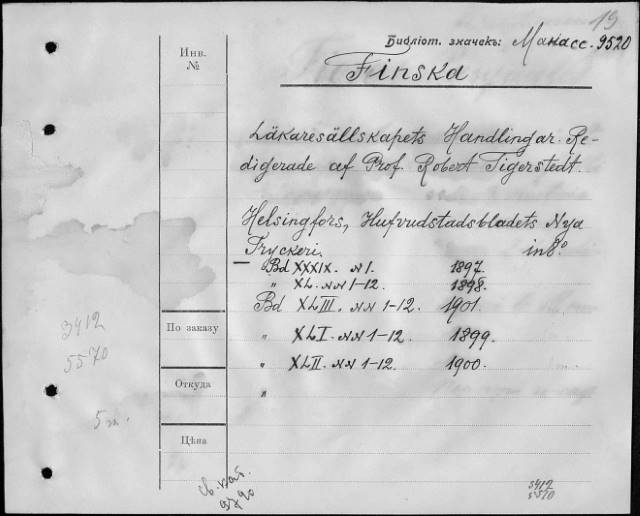 19
Библіот. значекъ: Макасс. 9520
Инв.
№
Finska
Läkaresällskapets Handlingar. Re-
digerade af Prof. Robert Tigerstedt.
Helsingfors, Hufvudstadsbladets Nya
Tryckeri. in 8:o
Bd XXXIX. N 1. 1897.
" XL. NN 1-12. 1898.
Bd XLIII. NN 1-12. 1901.
3412
По заказу
" XLI. NN 1-12. 1899.
5570
" XLII. NN 1-12. 1900.
Откуда
"
5 т.
Цѣна
3412
5570